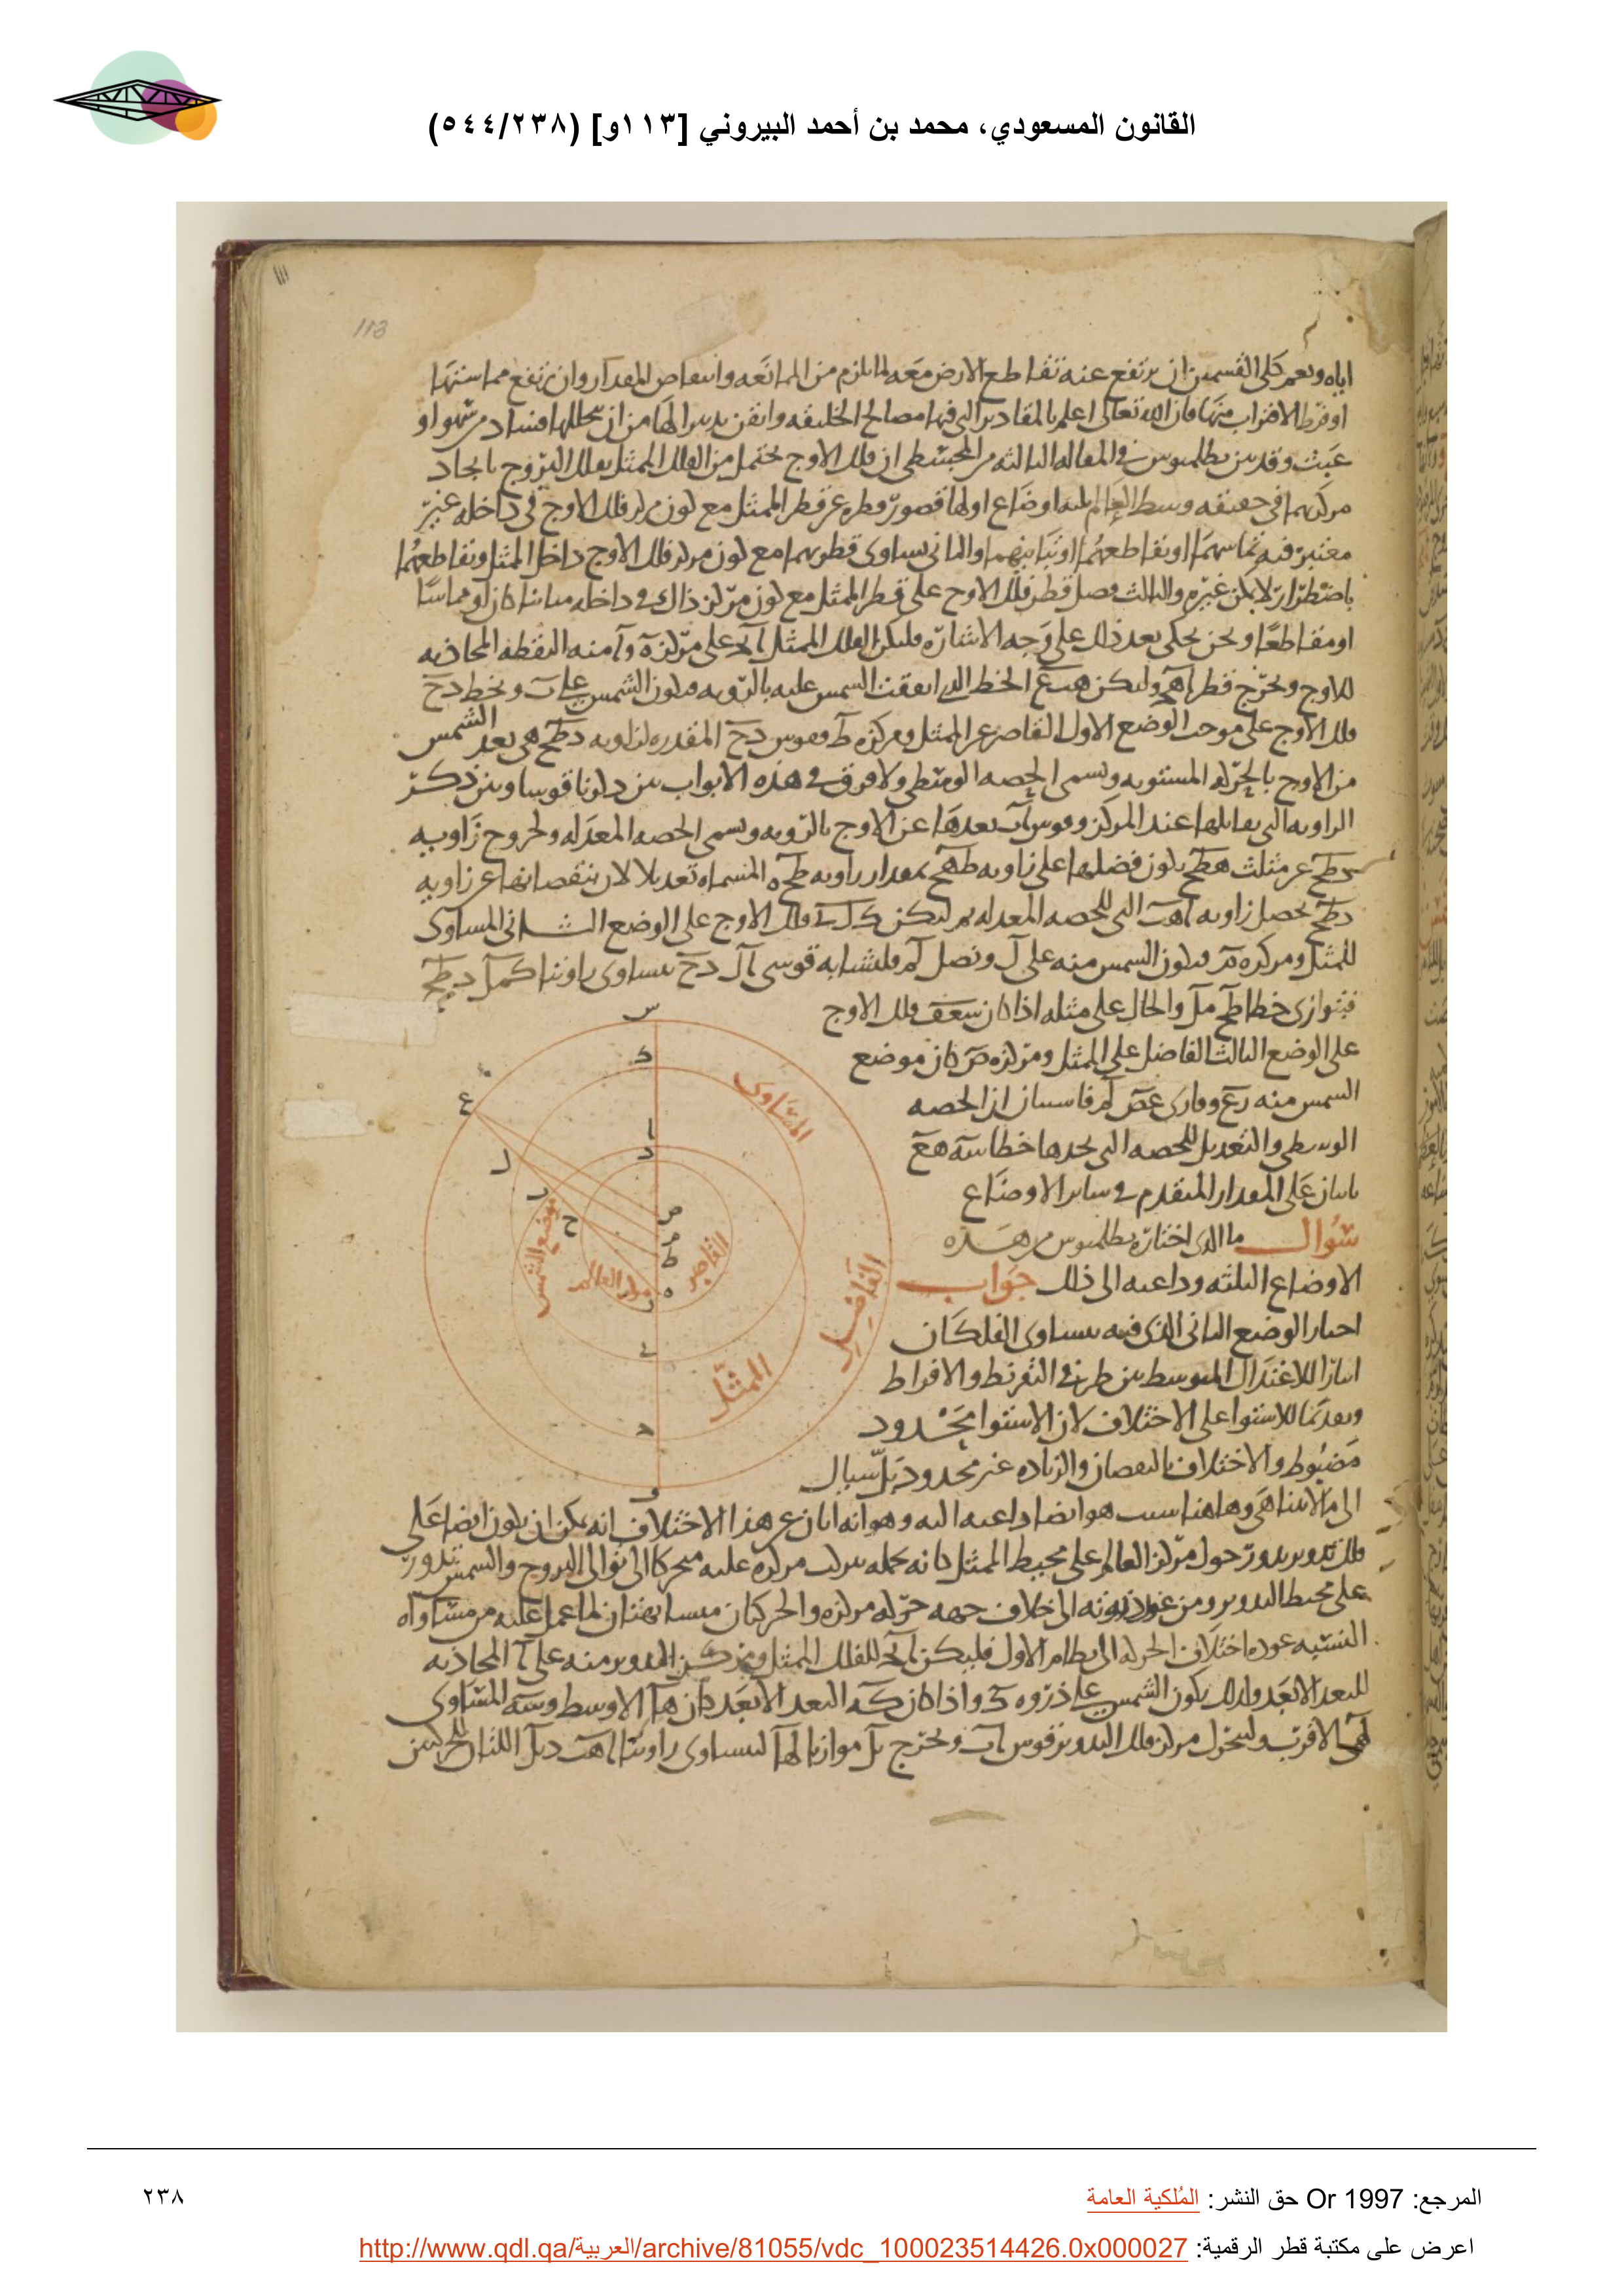 القانون المسعودي، محمد بن أحمد البيروني [١١٣و] (٥٤٤/٢٣٨)
١١١
113
اياه ونعم كلى القسمين ان يرتفع عنه تقاطع الارض معه لما يلزم من الممانعه وانتقاص المقدار وان يرتفع مماستها
او فرط الاقتراب منها فان الله تعالى اعلم بالمقادير التى فيها مصالح الخليقه واتقن تدبيرا لها من ان يتخللها فساد من سهو او
عبث وقد بين بطلميوس فى المقاله الثالثه من المجسطى ان فلك الاوج يحتمل من الفلك الممثل بفلك البروج باتحاد
مركزيهما فى حقيقه وسط العالم ثلثه اوضاع اولها قصور قطره عن قطر الممثل مع كون مركز فلك الاوج فى داخله غير
معتبر فيه تماسهما او تقاطعهما او تباينهما والثانى تساوى قطريهما مع كون مركز فلك الاوج داخل الممثل وتقاطعهما
باضطرار لا يمكن غيره والثالث فضل قطر فلك الاوج على قطر الممثل مع كون مركز ذاك فى داخله مباينا كان او مماسا
او متقاطعا ونحن نحكى بعد ذلك على وجه الاشاره فليكن الفلك الممثل ا‍بج على مركز ه و ا منه النقطه المحاذيه
للاوج ونخرج قطر اهج وليكن هبع الخط الذى اتفقت الشمس عليه بالرويه فيكون الشمس على ب ونخط دح
فلك الاوج على موجب الوضع الاول القاصر عن الممثل ومركزه ط وقوس دح المقدره لزاويه دطح هى بعد الشمس
من الاوج بالحركه المستويه وتسمى الحصه الوسطى ولا فرق فى هذه الابواب بين ذكرنا قوسا وبين ذكر
الزاويه التى تقابلها عند المركز وقوس اب بعدها عن الاوج بالرويه وتسمى الحصه المعدله ولخروج زاويه
دطح عن مثلث هطح يكون فضلها على زاويه طهح بمقدار زاويه طحه المسماه تعديلا لان بنقصانها عن زاويه
دطح يحصل زاويه اهب التى للحصه المعدله ثم ليكن كل‍ى فلك الاوج على الوضع الثانى المساوى
للممثل ومركزه م فيكون الشمس منه على ل ونصل لم فلتشابه قوسى كل دح يتساوى زاويتا كمل دطح
فيتوازى خطا طح مل والحال على مثله اذا كان سعف فلك الاوج
على الوضع الثالث الفاضل على الممثل ومركزه ص كان موضع
الشمس منه ع ووازى عص لم فاستبان ان الحصه
الوسطى والتعديل للحصه التى يحدها خطا سه هع
ثابتان على المقدار المتقدم فى ساير الاوضاع
سؤال ما الذى اختاره بطلميوس من هذه
الاوضاع الثلثه وداعيه الى ذلك جواب
اختار الوضع الثانى الذى فيه يتساوى الفلكان
ايثارا للاعتدال المتوسط بين طرفى التفريط والافراط
وتقديما للاستوا على الاختلاف لان الاستوا محدود
مضبوط والاختلاف بالنقصان والزياده غير محدود بل سيال
الى ما لا يتناهى وهاهنا سبب هو ايضا داعيه اليه وهو انه ابان عن هذا الاختلاف انه يمكن ان يكون ايضا على
فلك تدوير يدور حول مركز العالم على محيط الممثل كانه يحمله مركزه عليه متحركا الى توالى البروج والشمس تدور
على محيط التدوير ومن عند ذروته الى خلاف جهه حركه مركزه والحركتان متشابهتان لما عمل عليه من مساواه
النسبه عوده اختلاف الحركه الى نظام الاول فليكن ابج للفلك الممثل ومركز التدوير منه على ا المحاذيه
للبعد الابعد ولذلك يكون الشمس على ذروه ك واذا كان كه البعد الابعد كان ها الاوسط وسه المساوى
لهى الاقرب وليتحرك مركز فلك التدوير قوس اب ونخرج بل موازيا لها ليتساوى زاويتا اهب دبل اللتان للحركتين
س
ك
المساوى
ع
ا
د
ل
ب
ح
ص
م
ط
ه
ز
موضع الشمس
مركز العالم
القاصر
الفاضل
ى
الممثل
ج
ف
المرجع: Or 1997 حق النشر: المُلكية العامة
٢٣٨
اعرض على مكتبة قطر الرقمية: http://www.qdl.qa/العربية/archive/81055/vdc_100023514426.0x000027